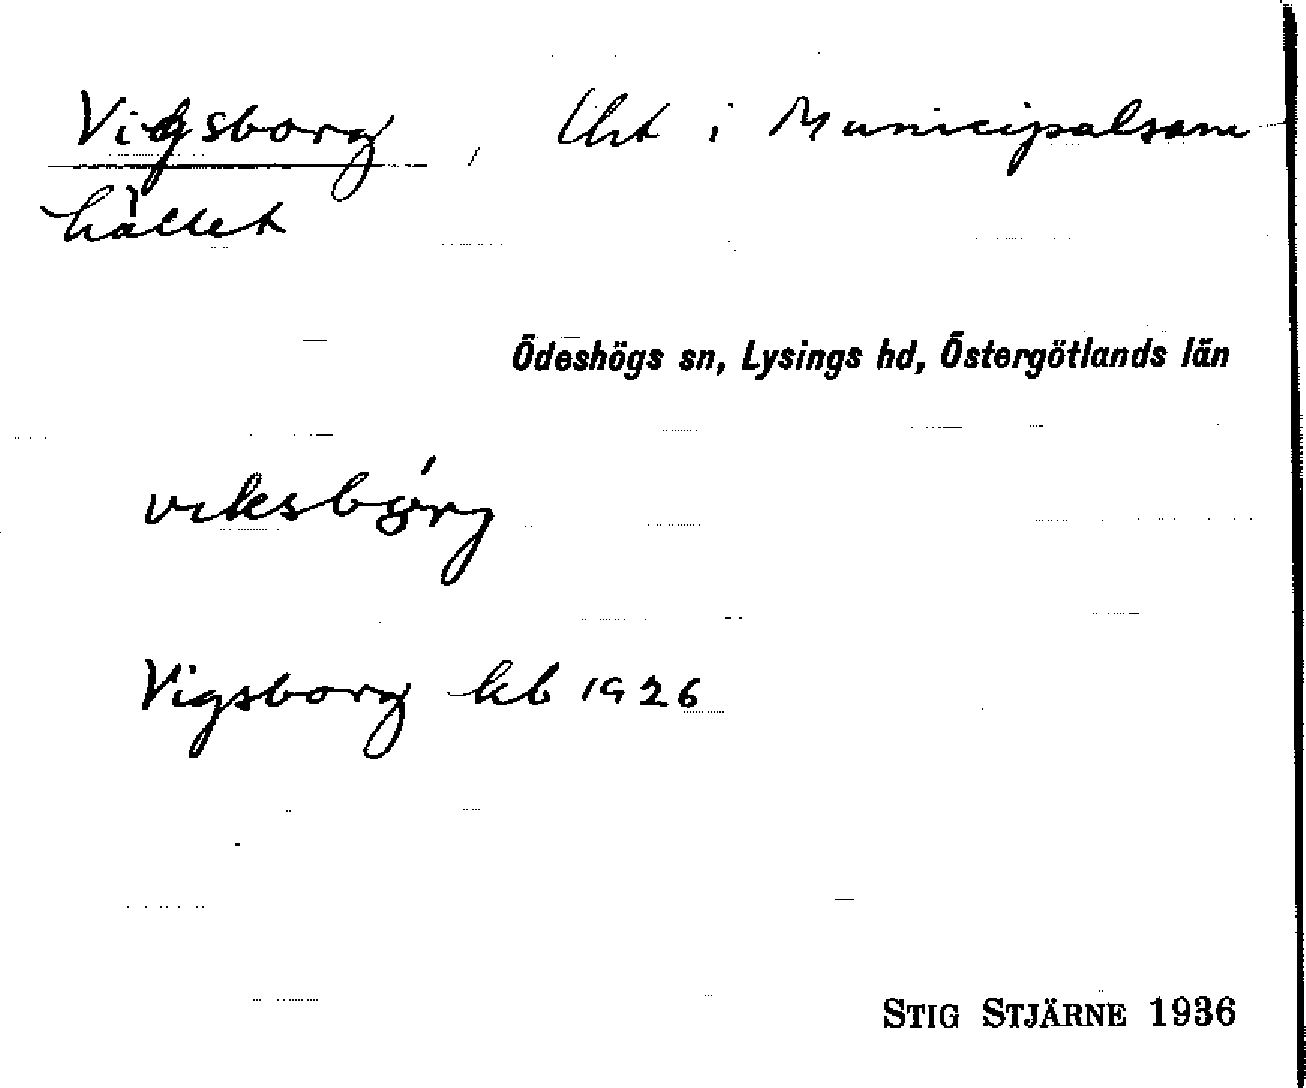 Vigsborg, Lht i Municipalsam
hället
Ödeshögs sn, Lysings hd, Östergötlands län
viksbǫ́rj
Vigsborg kb 1926
STIG STJÄRNE 1936